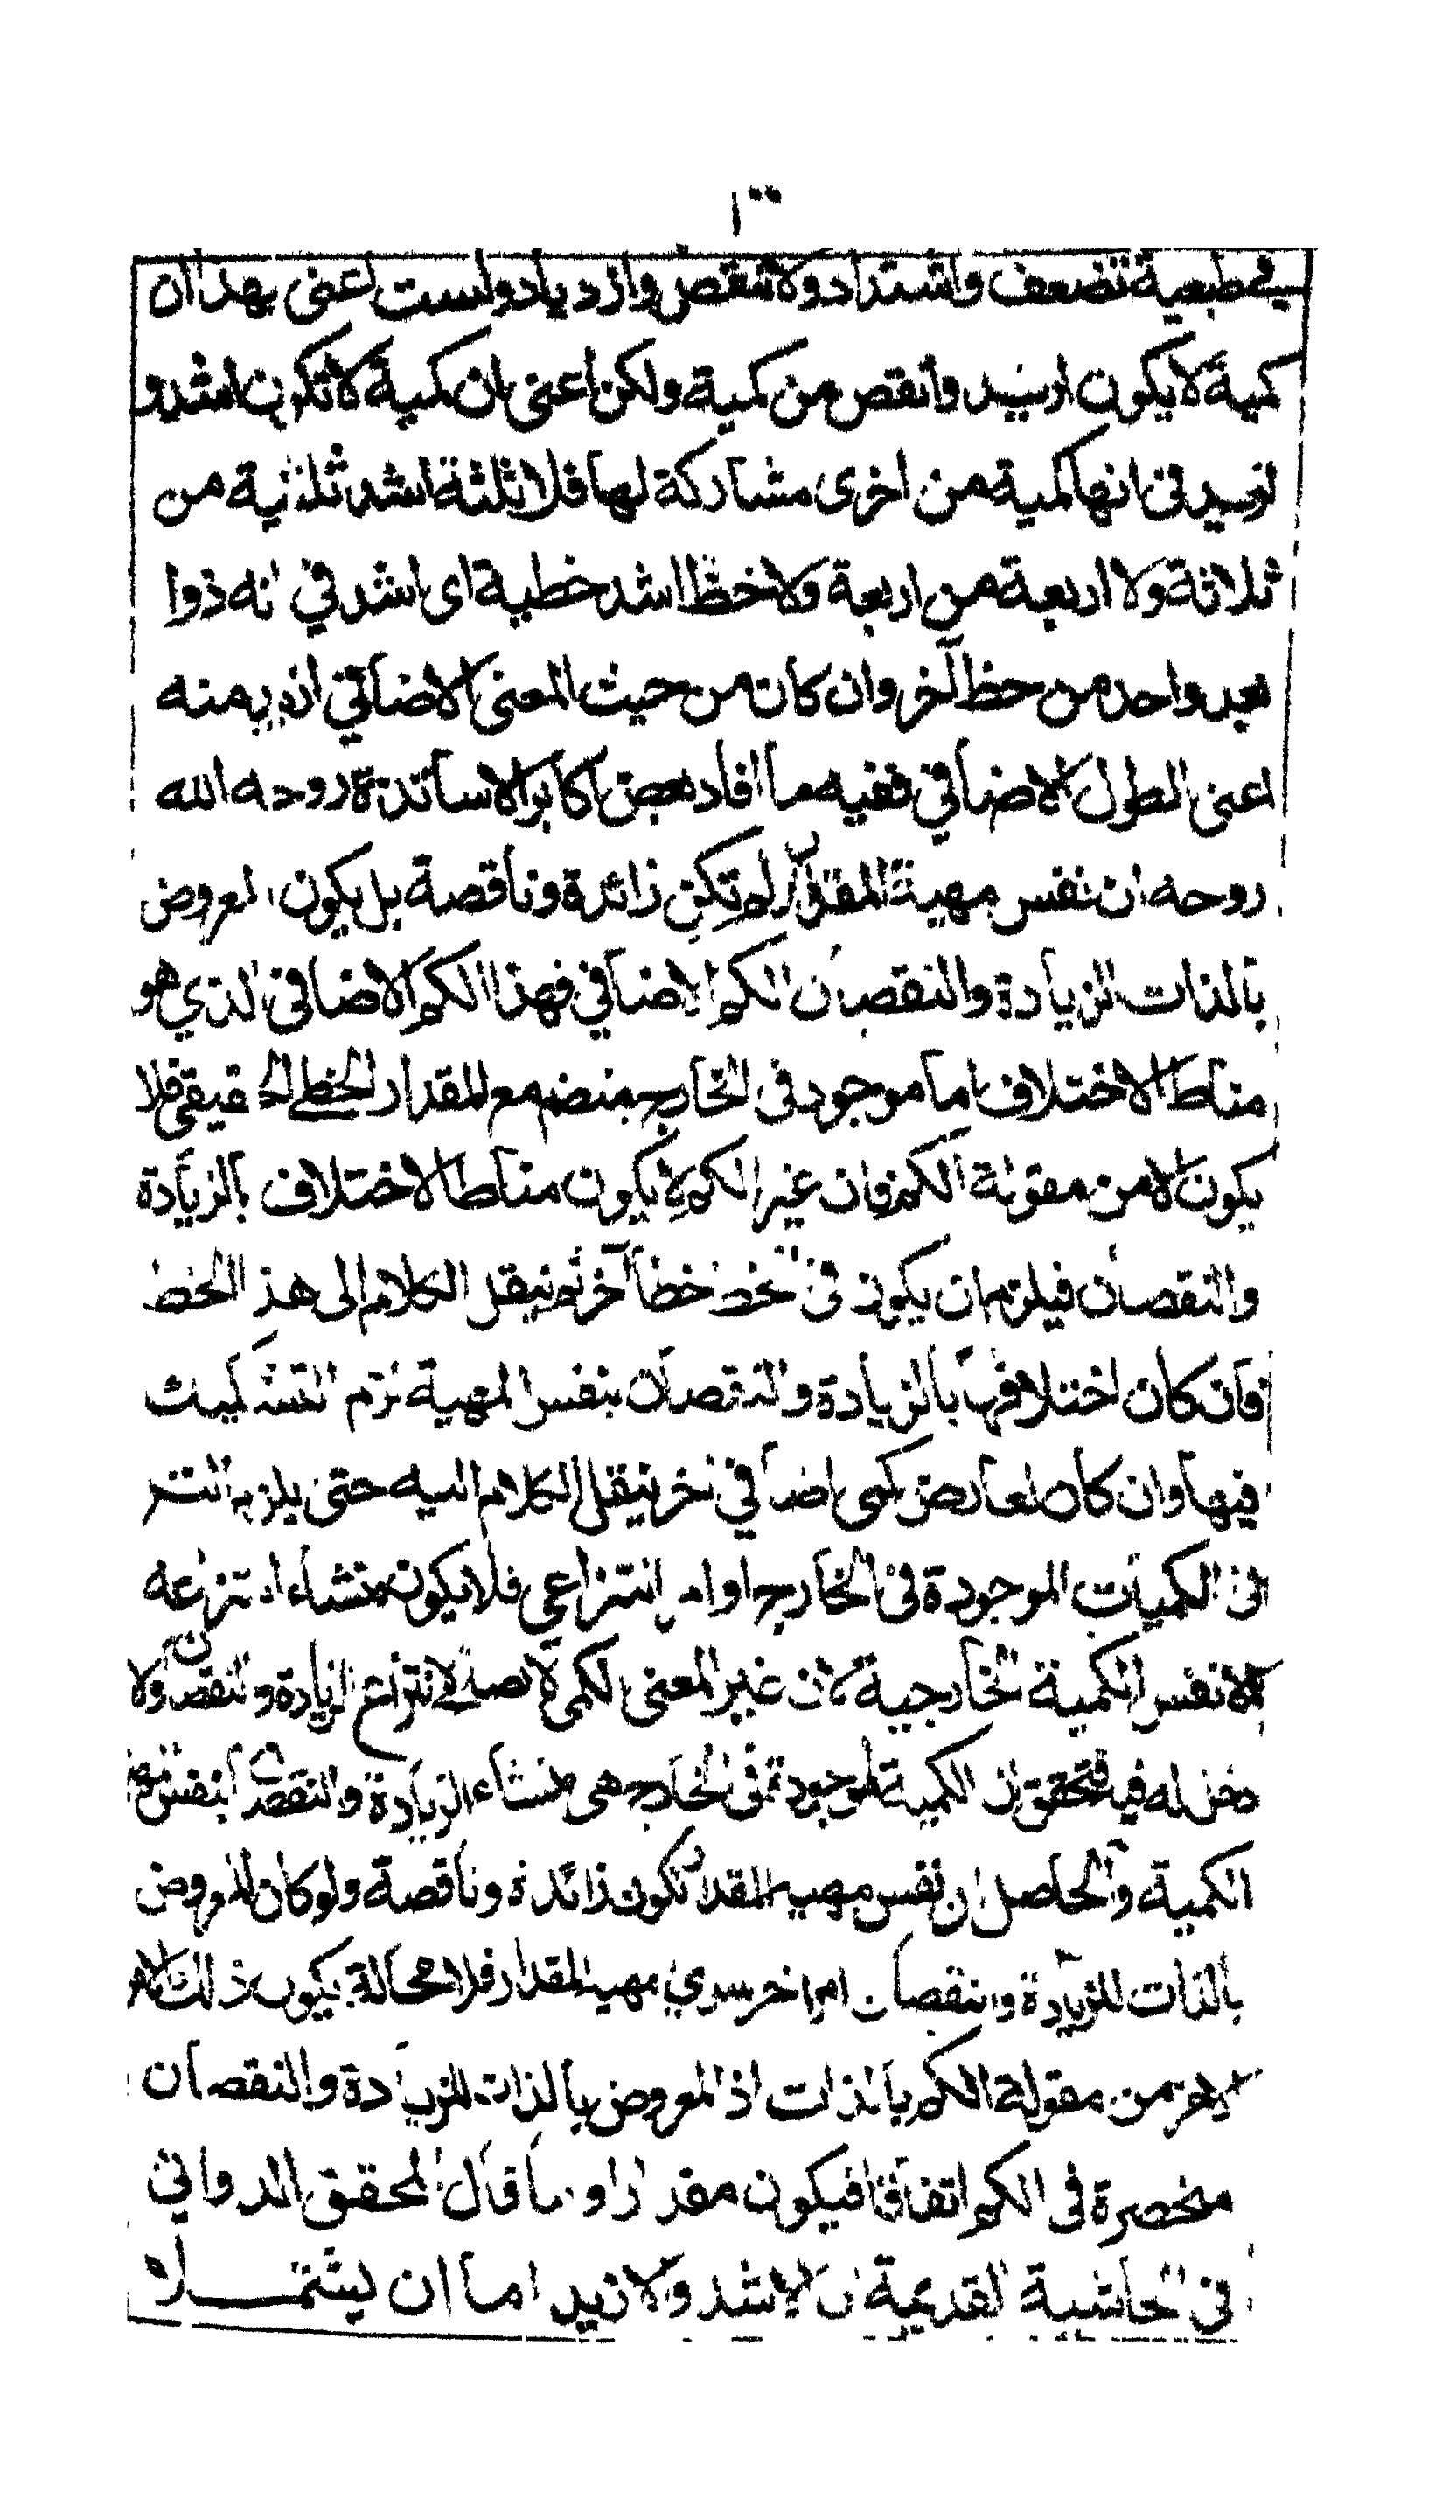 ١٠٠
في طبعية تضعف واشتداد ولا تنقص وازدياد ولست اعنى بهذا ان
كمية لا يكون ازيد وانقص من كمية ولكن اعنى ان كمية لا تكون اشد و
ازيد فى انها كمية من اخرى مشاركة لها فلا ثلثة اشد ثلاثية من
ثلاثة ولا اربعة من اربعة ولا خط اشد خطية اى اشد في انه ذو
بعد واحد من خط آخر وان كان من حيث المعنى الاضافي ازيد منه
اعنى الطول الاضافي ففيه ما افاد بعض اكابر الاساتذة روحه الله
روحه ان نفس مهية المقدار لم تكن زائدة وناقصة بل يكون المعروض
بالذات للزيادة والنقصان الكم الاضافي فهذا الكم الاضافى الذي هو
مناط الاختلاف اما موجود فى الخارج منضم مع المقدار الخطى الحقيقى فلا
يكون الا من مقولة الكم فان غير الكم لا يكون مناط الاختلاف بالزيادة
والنقصان فيلزم ان يكون فى الخط خط آخر ثم ينقل الكلام الى هذا الخط
فان كان اختلافها بالزيادة والنقصان بنفس المهية لزم التشكيك
فيها وان كان لعارض كمى اضافي آخر ينقل الكلام اليه حتى يلزم التس
فى الكميات الموجودة فى الخارج او امر انتزاعي فلا يكون منشاء انتزاعه
الا نفس الكمية الخارجية لان غير المعنى الكمى لا يصلح لانتزاع الزيادة والنقصان ولا
دخل له فيه فتحقق ان الكمية الموجودة فى الخارج هى منشاء الزيادة والنقصان بنفس
الكمية والحاصل ان نفس مهية المقدار تكون زائدة وناقصة ولو كان المعروض
بالذات للزيادة والنقصان امرا اخر سوى مهية المقدار فلا محالة يكون ذلك الامر
الاخر من مقولة الكم بالذات اذ المعروض بالذات للزيادة والنقصان
منحصرة فى الكم اتفاقا فيكون مقدارا وما قال المحقق الدوانى
فى الحاشية القديمة ان الاشد والازيد اما ان يشتملا